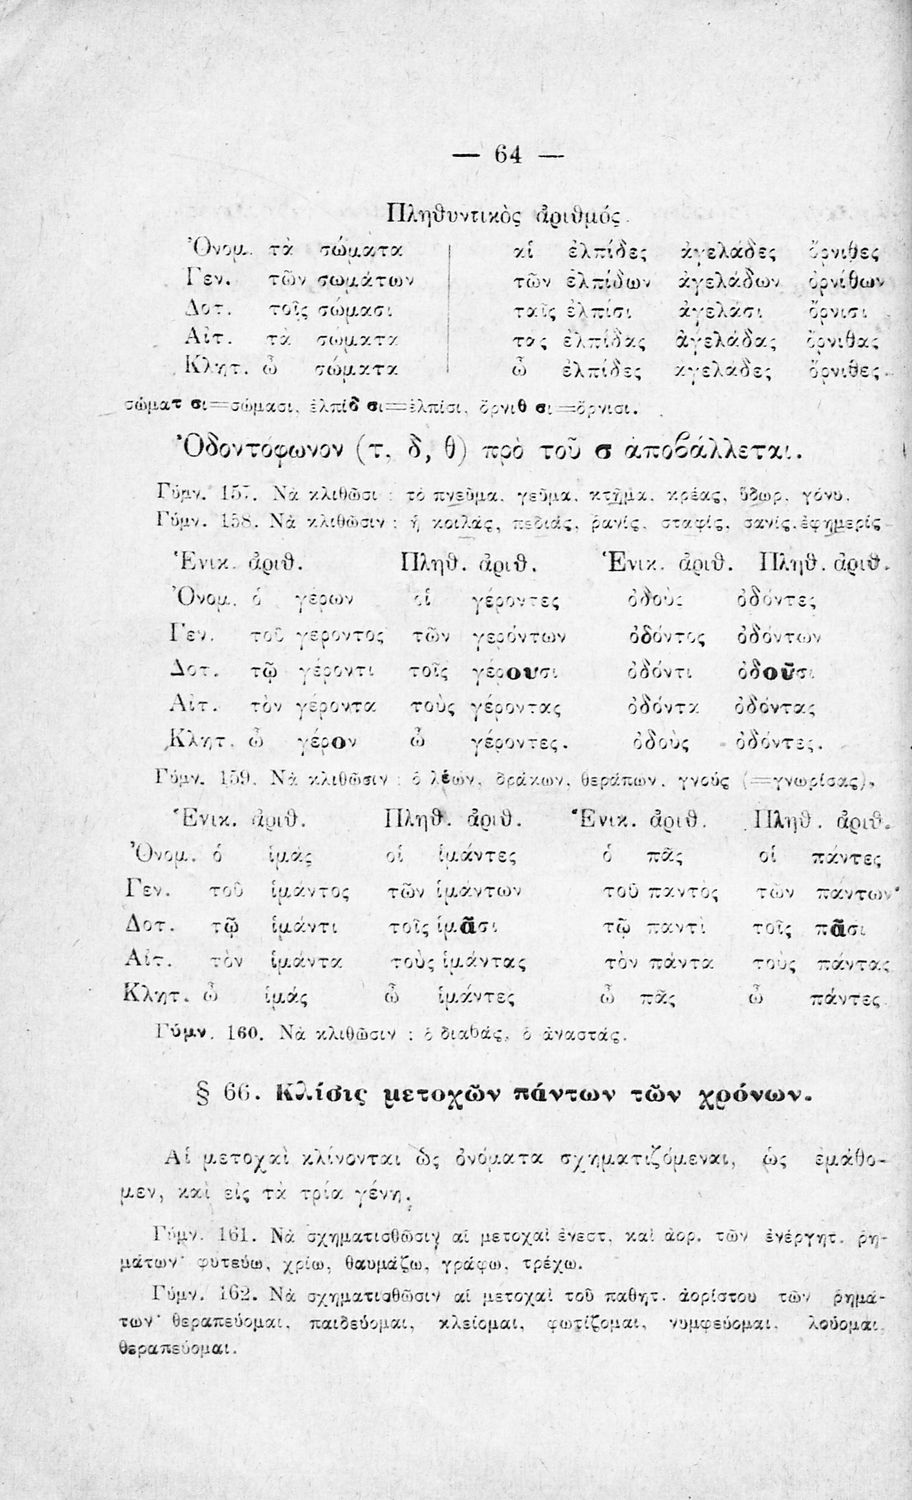 — 64 —
Πληθυντικὸς ἀριθμός.
Ὀνομ. τὰ σώματα αἱ ἐλπίδες ἀγελάδες ὄρνιθες
Γεν. τῶν σωμάτων τῶν ἐλπίδων ἀγελάδων ὀρνίθων
Δοτ. τοῖς σώμασι ταῖς ἐλπίσι ἀγελάσι ὄρνισι
Αἰτ. τὰ σώματα τας ἐλπίδας ἀγελάδας ὄρνιθας
Κλητ. ὦ σώματα ὦ ἐλπίδες ἀγελάδες ὄρνιθες.
σώματ σι=σώμασι, ἐλπίδ σι=ἐλπίσι, ὄρνιθ σι=ὄρνισι.
Ὀδοντόφωνον (τ, δ, θ) πρὸ τοῦ σ ἀποβάλλεται.
Γύμν. 157. Νὰ κλιθῶσι : τὸ πνεῦμα, γεῦμα, κτῆμα, κρέας, ὕδωρ, γόνυ.
Γύμν. 158. Νὰ κλιθῶσιν : ἡ κοιλάς, πεδιάς, ῥανίς, σταφίς, σανίς, ἐφημερίς
Ἑνικ. ἀριθ. Πληθ. ἀριθ. Ἑνικ. ἀριθ. Πληθ. ἀριθ.
Ὀνομ. ὁ γέρων οἱ γέροντες ὀδοὺς ὀδόντες
Γεν. τοῦ γεροντος τῶν γερόντων ὀδόντος ὀδόντων
Δοτ. τῷ γέροντι τοῖς γέρουσι ὀδόντι ὀδοῦσι
Αἰτ. τὸν γέροντα τοὺς γέροντας ὀδόντα ὀδόντας
Κλητ. ὦ γέρον ὦ γέροντες. ὀδοὺς ὀδόντες.
Γύμν. 159. Νὰ κλιθῶσιν : ὁ λέων, δράκων, θεράπων, γνοὺς (=γνωρίσας).
Ἑνικ. ἀριθ. Πληθ. ἀριθ. Ἑνικ. ἀριθ. Πληθ. ἀριθ.
Ὀνομ. ὁ ἱμὰς οἱ ἱμάντες ὁ πᾶς οἱ πάντες
Γεν. τοῦ ἱμάντος τῶν ἱμάντων τοῦ παντὸς τῶν πάντων
Δοτ. τῷ ἱμάντι τοῖς ἱμᾶσι τῷ παντὶ τοῖς πᾶσι
Αἰτ. τὸν ἱμάντα τοὺς ἱμάντας τὸν πάντα τοὺς πάντας
Κλητ. ὦ ἱμάς ὦ ἱμάντες ὦ πᾶς ὦ πάντες
Γύμν. 160. Νὰ κλιθῶσιν : ὁ διαβάς, ὁ ἀναστάς.
§ 66. Κλίσις μετοχῶν πάντων τῶν χρόνων.
Αἱ μετοχαὶ κλίνονται ὡς ὀνόματα σχηματιζόμεναι, ὡς ἐμάθο-
μεν, καὶ εἰς τὰ τρία γένη.
Γύμν. 161. Νὰ σχηματισθῶσιν αἱ μετοχαὶ ἐνεστ. καὶ ἀορ. τῶν ἐνέργητ. ῥη-
μάτων· φυτεύω, χρίω, θαυμάζω, γράφω, τρέχω.
Γύμν. 162. Νὰ σχηματισθῶσιν αἱ μετοχαὶ τοῦ παθητ. ἀορίστου τῶν ῥημά-
των· θεραπεύομαι, παιδεύομαι, κλείομαι, φωτίζομαι, νυμφεύομαι, λούομαι,
θεραπεύομαι.